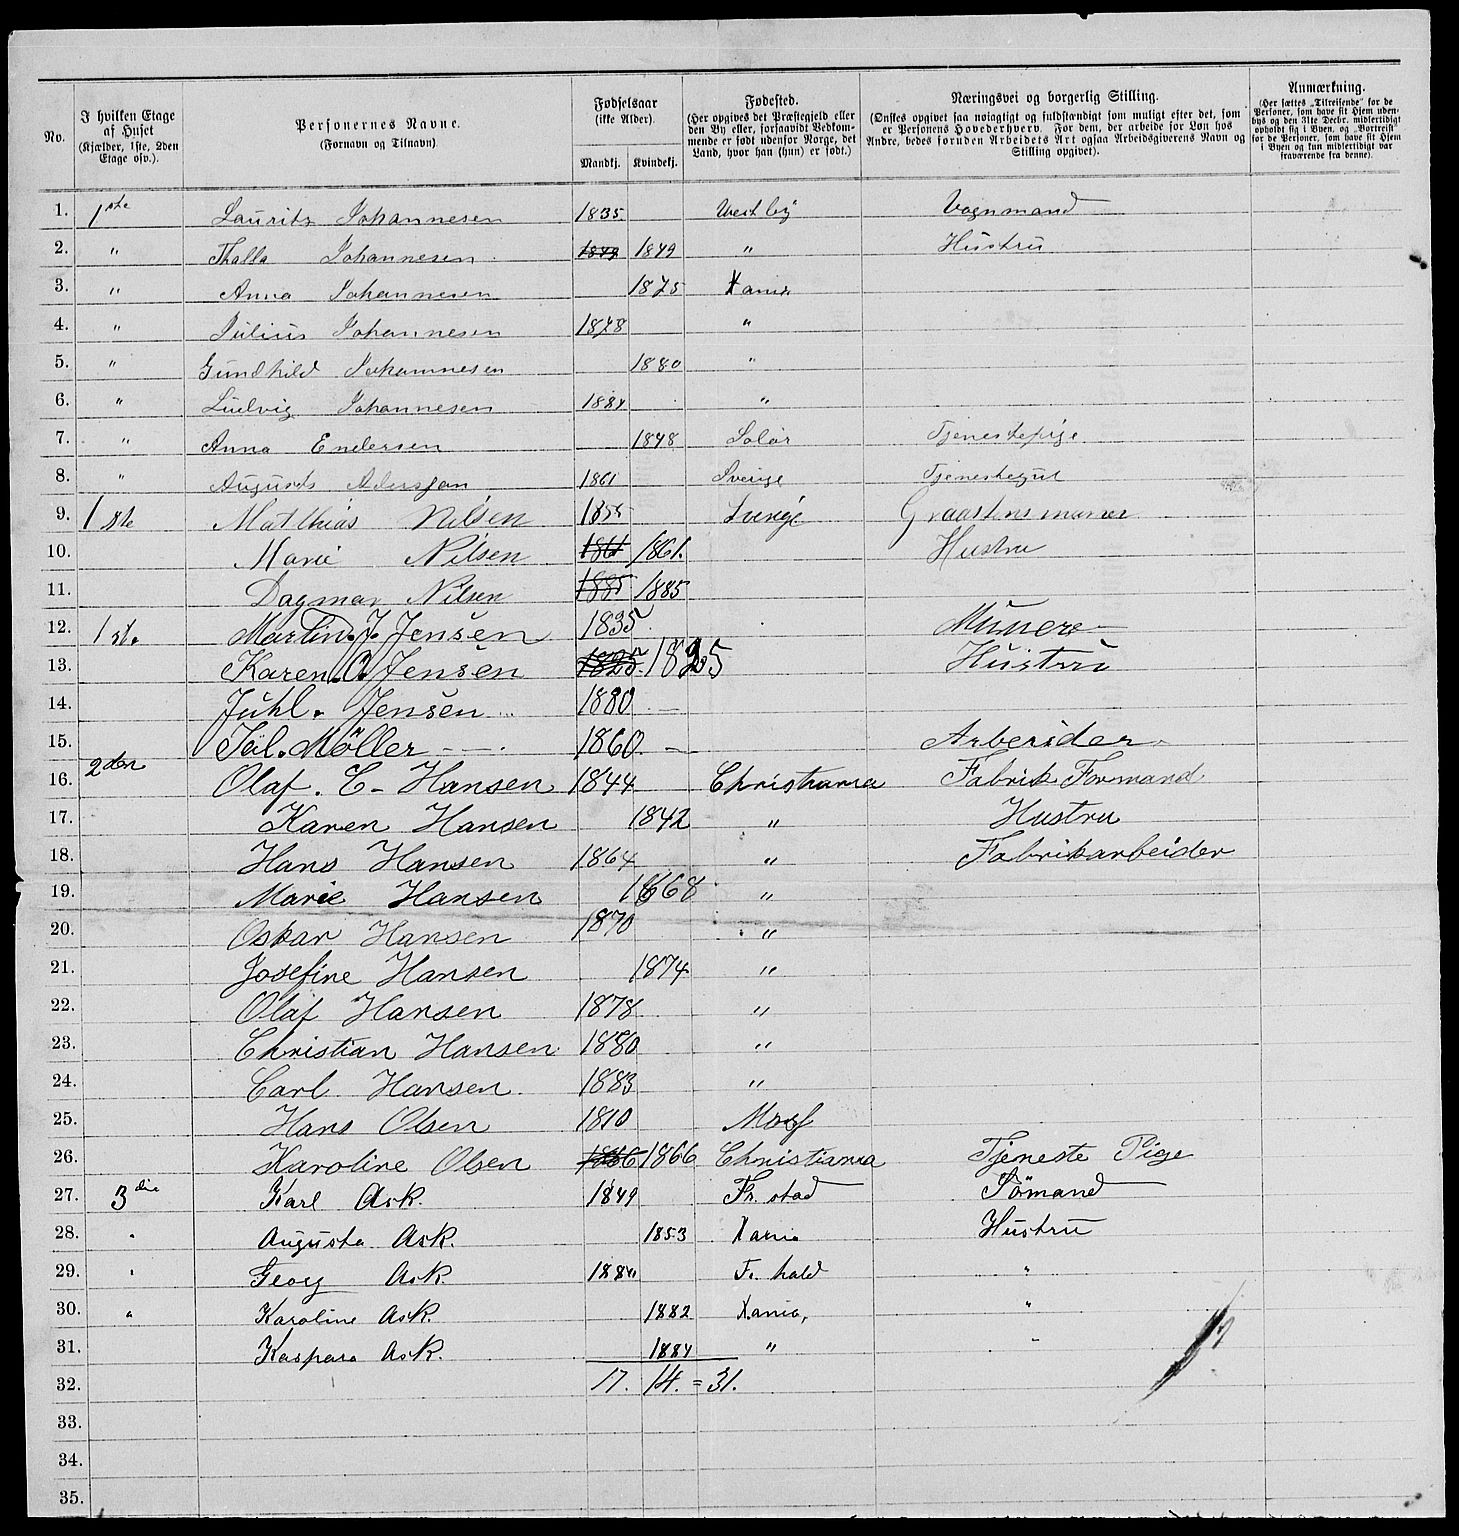 No. | I hvilken Etage af Huset (Kjælder, 1ste, 2den Etage osv.). | Personernes Navne. (Fornavn og Tilnavn) | Fødselsaar (ikke Alder). Mandkj. | Kvindekj. | Fødested. (Her opgives det Præstegjeld eller den By eller, forsaavidt Vedkommende er født udenfor Norge, det Land, hvor han (hun) er født.) | Næringsvei og borgerlig Stilling. (Ønskes opgivet saa nøiagtigt og fuldstændigt som muligt efter det, som er Personens Hovederhverv. For dem, der arbeide for Løn hos Andre, bedes foruden Arbeidets Art ogsaa Arbeidsgiverens Navn og Stilling opgivet). | Anmærkning. (Her sættes „Tilreisende" for de Personer, som have sit Hjem udenbys og den 31te Decbr. midlertidigt opholdt sig i Byen, og „Bortreist" for de Personer, som have sit Hjem i Byen og kun midlertidigt var fraværende fra denne).
1. 1ste Laurits Johannesen 1835 Westby Vognmand
2. " Thalla Johannesen 1849 1849 " Hustru
3. " Anna Johannesen 1875 Xania
4. " Julius Johannesen 1878 "
5. " Gundhild Johannesen 1880 "
6. " Ludvig Johannesen 1884 "
7. " Anna Endersen 1848 Solør Tjenestepige
8. " Augusds 1861 Sverige Tjenestegut
9. 1ste Matthias Nilsen 1855 Sverige Graastensmurer
10. Marie Nilsen 1861 1861. Hustru
11. Dagmar Nilsen 1885 1885
12. 1ste Martin. J. Jensen 1835 Murere
13. Karen. O. Jensen 1825 1825 Hustru
14. Juhl. Jensen 1880
15. Møller 1860 Arbeider
16. 2den Olaf. C. Hansen 1844 Christiania Fabrik Formand
17. Karen Hansen 1842 " Hustru
18. Hans Hansen 1864 " Fabrikarbeider
19. Marie Hansen 1868 "
20. Oskar Hansen 1870 "
21. Josefine Hansen 1874 "
22. Olaf Hansen 1878 "
23. Christian Hansen 1880 "
24. Carl Hansen 1883 "
25. Hans Olsen 1810
26. Karoline Olsen 1866 1866 Christiania Tjeneste Pige
27. 3die Karl Ask. 1849 Fr. stad Sömand
28. " Augusta Ask. 1853 Xania Hustru
29. " Georg Ask 1880 Fr. hald "
30. " Karoline Ask. 1882 Xania, "
31. Kaspara Ask. 1884 " "
32. 17. 14. = 31.
33.
34.
35.